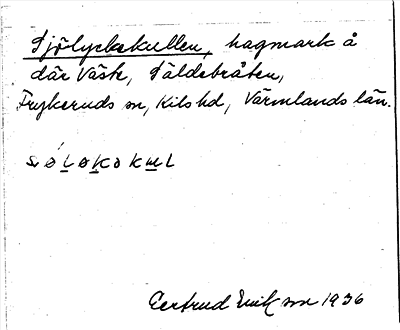 Sjölyckekullen, hagmark å
där Väst, Säldebråten,
Frykeruds sn, Kils hd, Värmlands län.
Gertrud Erikson 1936